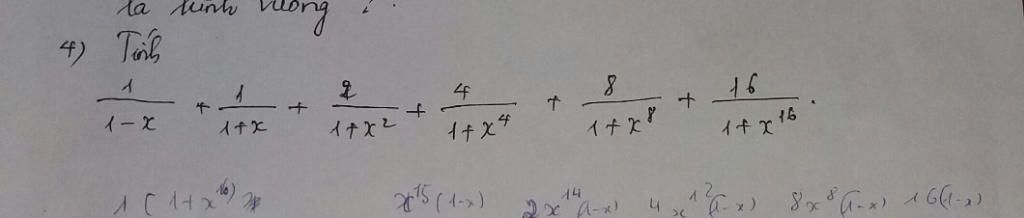 là hình vuông ?
4) Tính
1/(1-x) + 1/(1+x) + 2/(1+x²) + 4/(1+x⁴) + 8/(1+x⁸) + 16/(1+x¹⁶) .
1 ( 1+x¹⁶) x¹⁵(1-x) 2x¹⁴(1-x) 4x¹²(1-x) 8x⁸(1-x) 16(1-x)